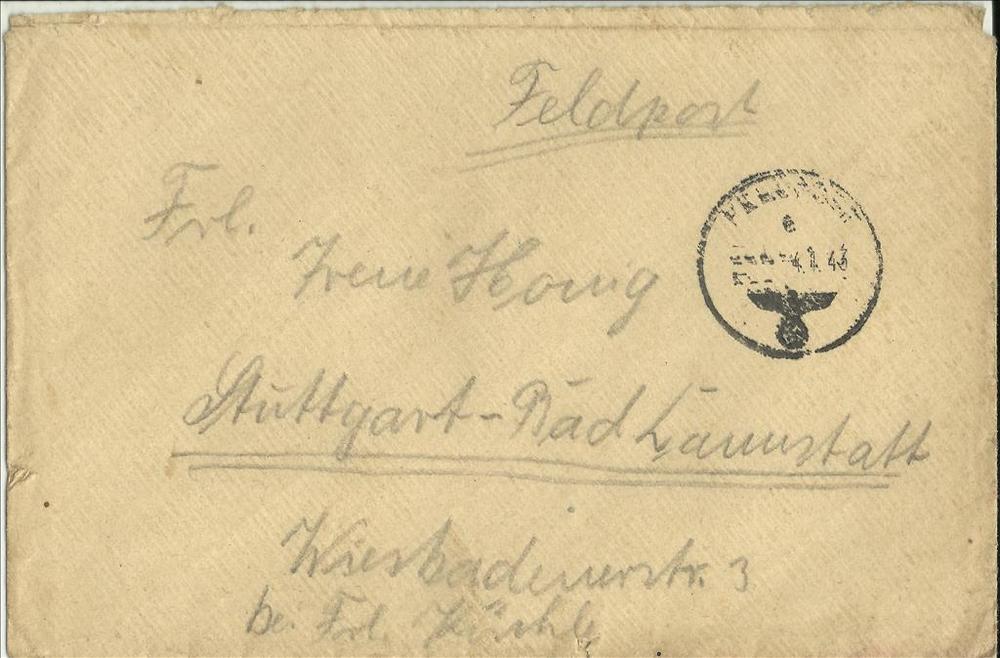 Feldpost
FELDPOST
e
4.1.43
Frl.
Irene Honig
Stuttgart-Bad Cannstatt
Wiesbadenerstr. 3
bei Frl.